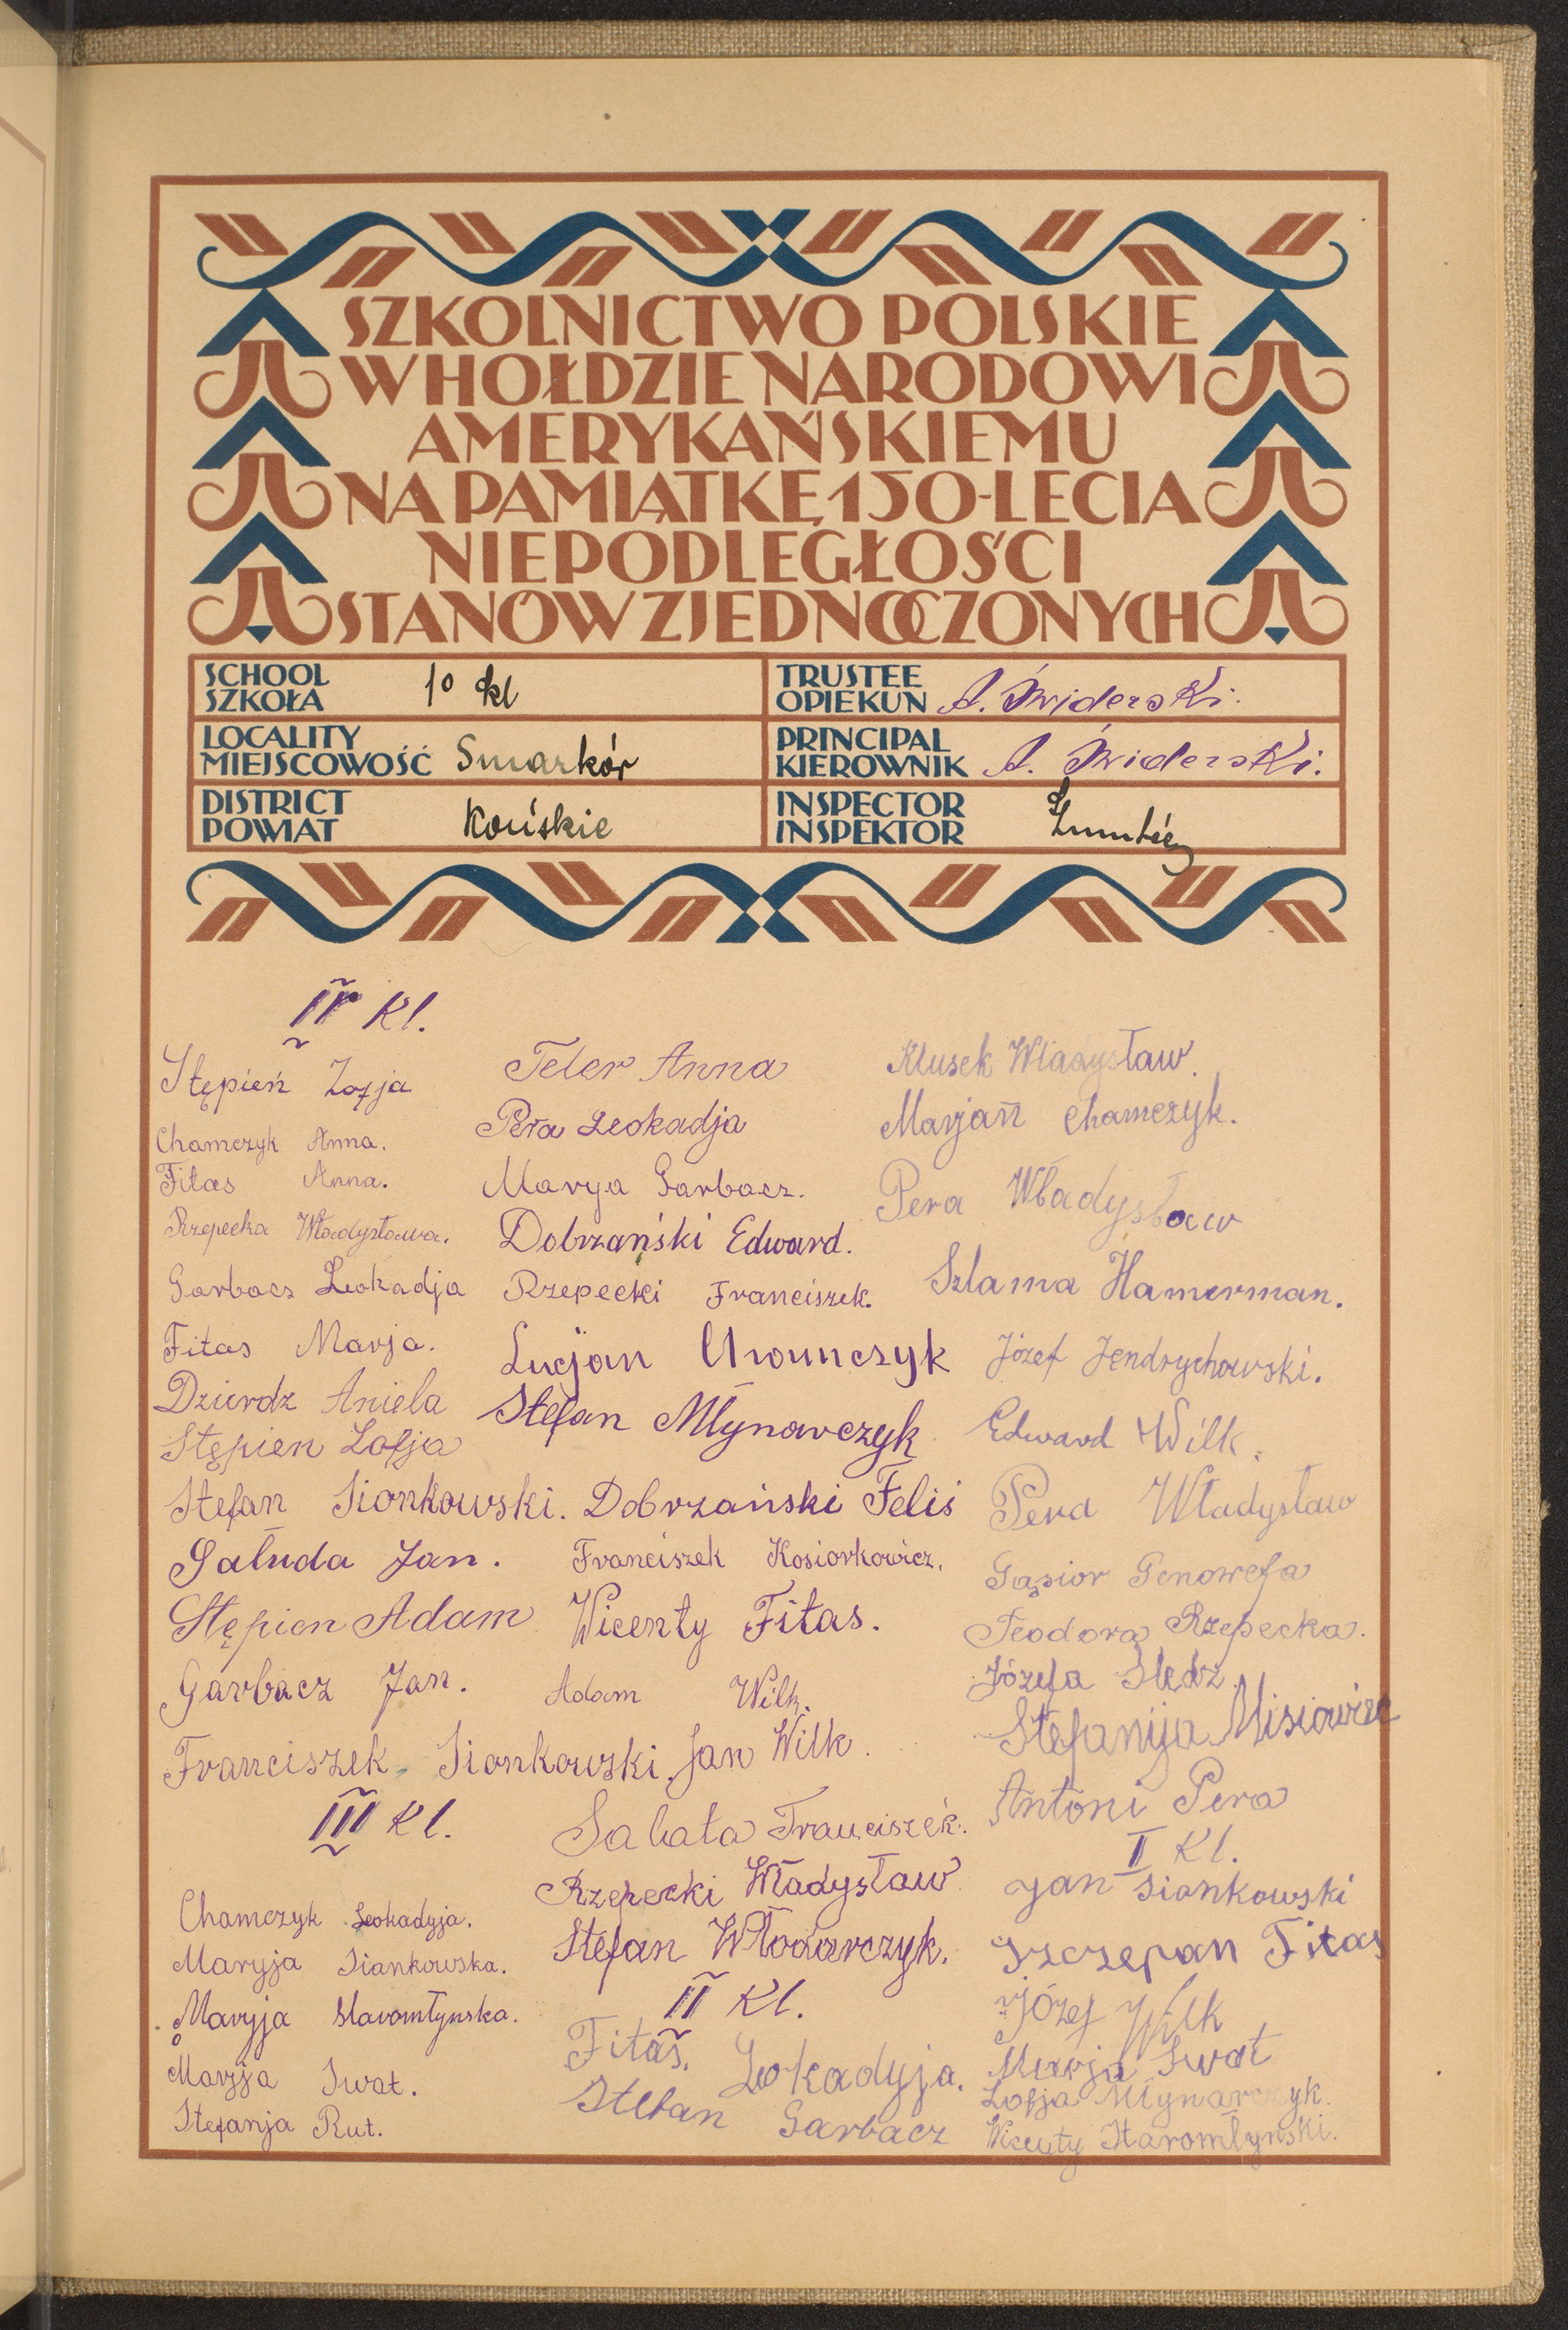 SZKOLNICTWO POLSKIE
W HOŁDZIE NARODOWI
AMERYKAŃSKIEMU
NA PAMIĄTKĘ 150-LECIA
NIEPODLEGŁOŚCI
STANÓW ZJEDNOCZONYCH
SCHOOL
SZKOŁA
10 kl
TRUSTEE
OPIEKUN
A. Świderski.
LOCALITY
MIEJSCOWOŚĆ
Smarków
PRINCIPAL
KIEROWNIK
A. Świderski.
DISTRICT
POWIAT
Końskie
INSPECTOR
INSPEKTOR
IV Kl.
Stępień Zofja
Chamczyk Anna.
Fitas Anna.
Rzepecka Władysława.
Garbacz Leokadja
Fitas Marja.
Dzierdz Aniela
Stępien Zofja
Stefan Sionkowski.
Sałuda Jan.
Stępien Adam
Garbacz Jan.
Franciszek Sionkowski.
III Kl.
Chamczyk Leokadyja.
Maryja Siankowska.
Maryja Staromłynska.
Maryja Swat.
Stefanja Rut.
Teler Anna
Pera Leokadja
Marya Garbacz.
Dobrzański Edward.
Rzepecki Franciszek.
Lucjan
Stefan Młynarczyk
Dobrzański Felis
Franciszek Kosiorkowicz.
Wicenty Fitas.
Adam Wilk.
Jan Wilk.
Sabata Franciszek.
Rzepecki Władysław
Stefan Włodarczyk.
II Kl.
Fitas, Leokadyja.
Stefan Garbacz
Klusek Władysław.
Marjan Chamczyk.
Pera Władysław
Szlama Hamerman.
Józef Jendrychowski.
Edward Wilk.
Pera Władysław
Gąsior Genowefa
Teodora Rzepecka.
Józefa Śledz.
Stefanija Misiowiec
Antoni Pera
I Kl.
Jan Siankowski
Szczepan Fitas
Józef Wilk
Marja Swat
Zofja Młynarczyk.
Wicenty Staromłynski.